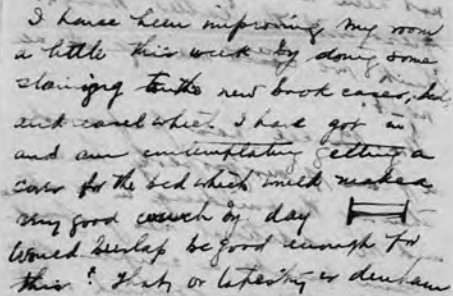 I have been improving my room
a little this week by doing some
staining to the new book cases,
and easel which I have got in
and am contemplating getting a
cover for the bed which would make a
very good couch by day
Would burlap be good enough for
this? That, or tapestry or denham